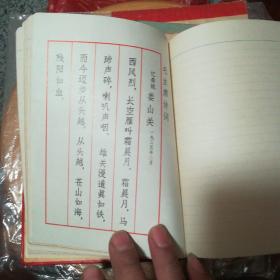 毛主席诗词
忆秦娥 娄山关 一九三五年二月
西风烈，长空雁叫霜晨月。霜晨月，马
蹄声碎，喇叭声咽。 雄关漫道真如铁，
而今迈步从头越。从头越，苍山如海，
残阳如血。